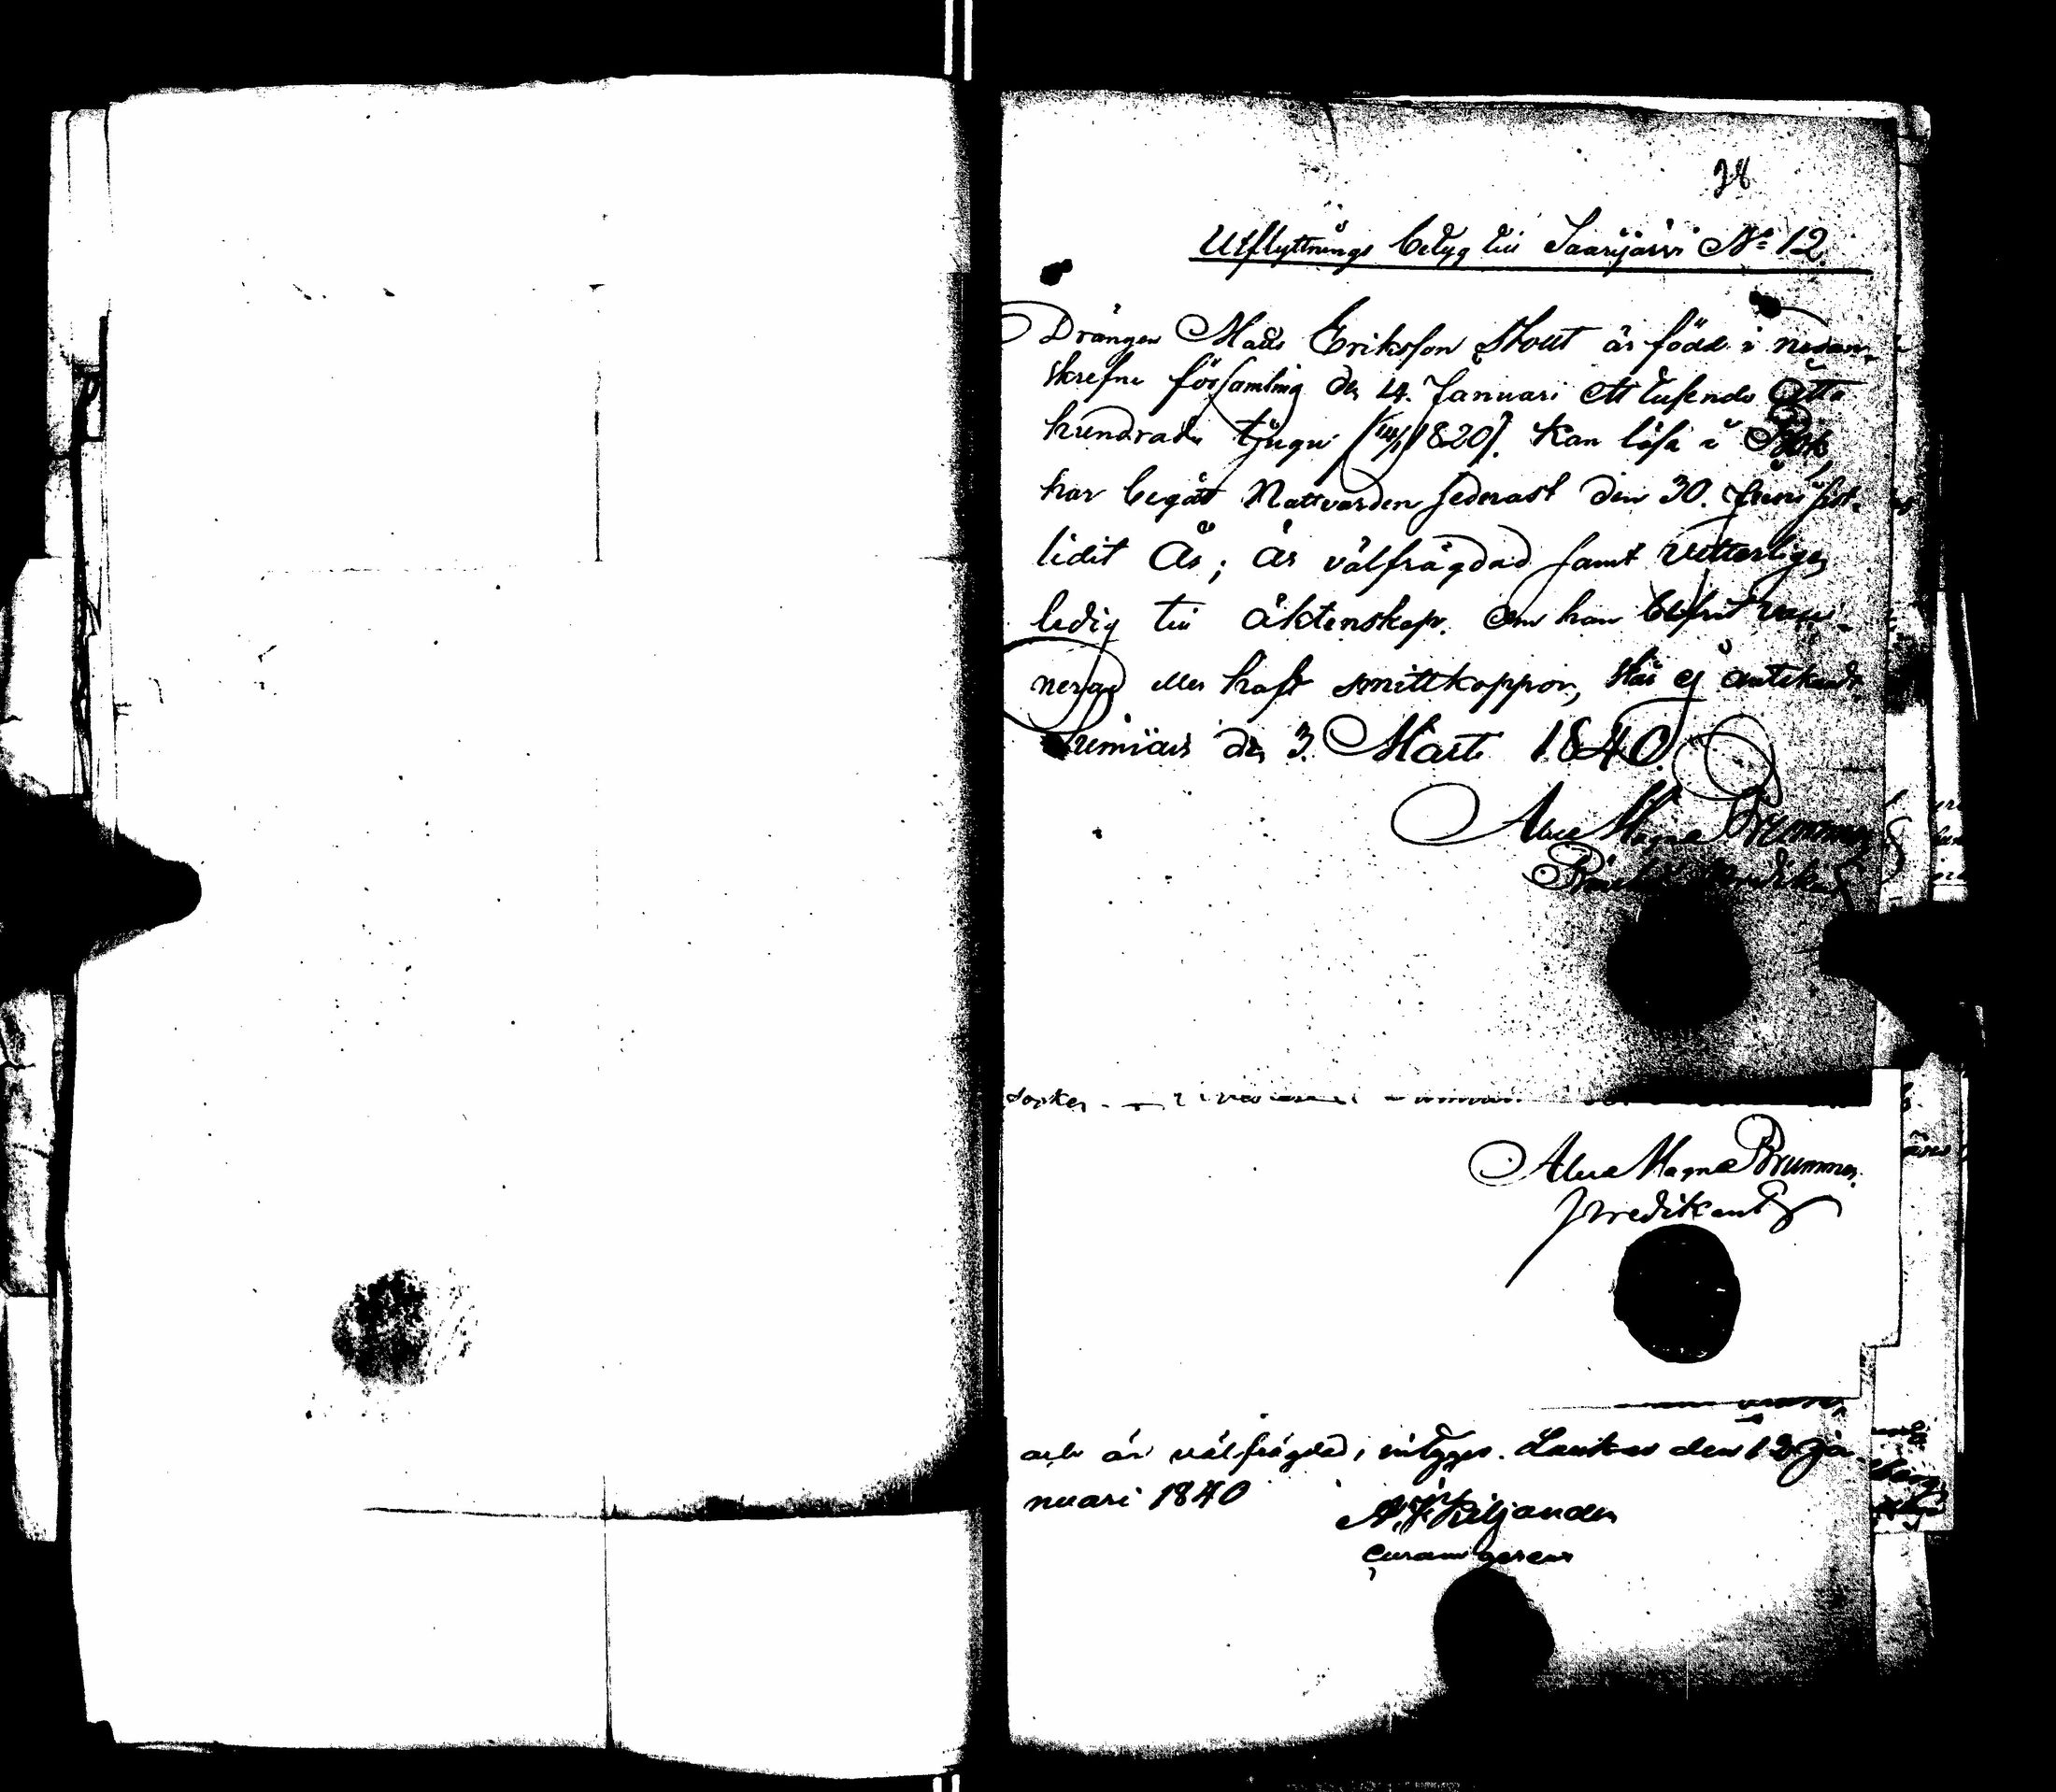 28
Utflyttnings betyg till Saarijärvi No 12.
Drängen Matts Eriksson Stout är född i nedan-
skrefne församling den 14. Januari ett tusende åtta
hundrade tjugu [14/1 1820]. Kan läsa i Bok,
har begått Nattvarden sednast den 30. Juni sist-
lidit År; är välfrägdad samt vetterligen
ledig till äktenskap. Om han blifvit vacci-
nerad eller haft smittkoppor, står ej antecknadt.
den 3. Marti 1840.
Magn. Brummer
Predikant
socken
Magn. Brummer.
Predikant
är välfrägdad, intygas. Laukas den 12 Ja-
nuari 1840
Kiljander
Curam gerens